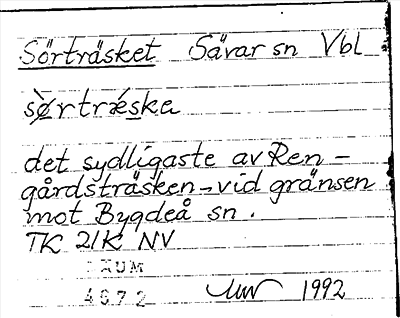 Sörträsket Sävar sn Vbl
sø̀rtrǽska
det sydligaste av Ren-
gårdsträsken - vid gränsen
mot Bygdeå sn.
TK 21K NV
DAUM
4672
1992